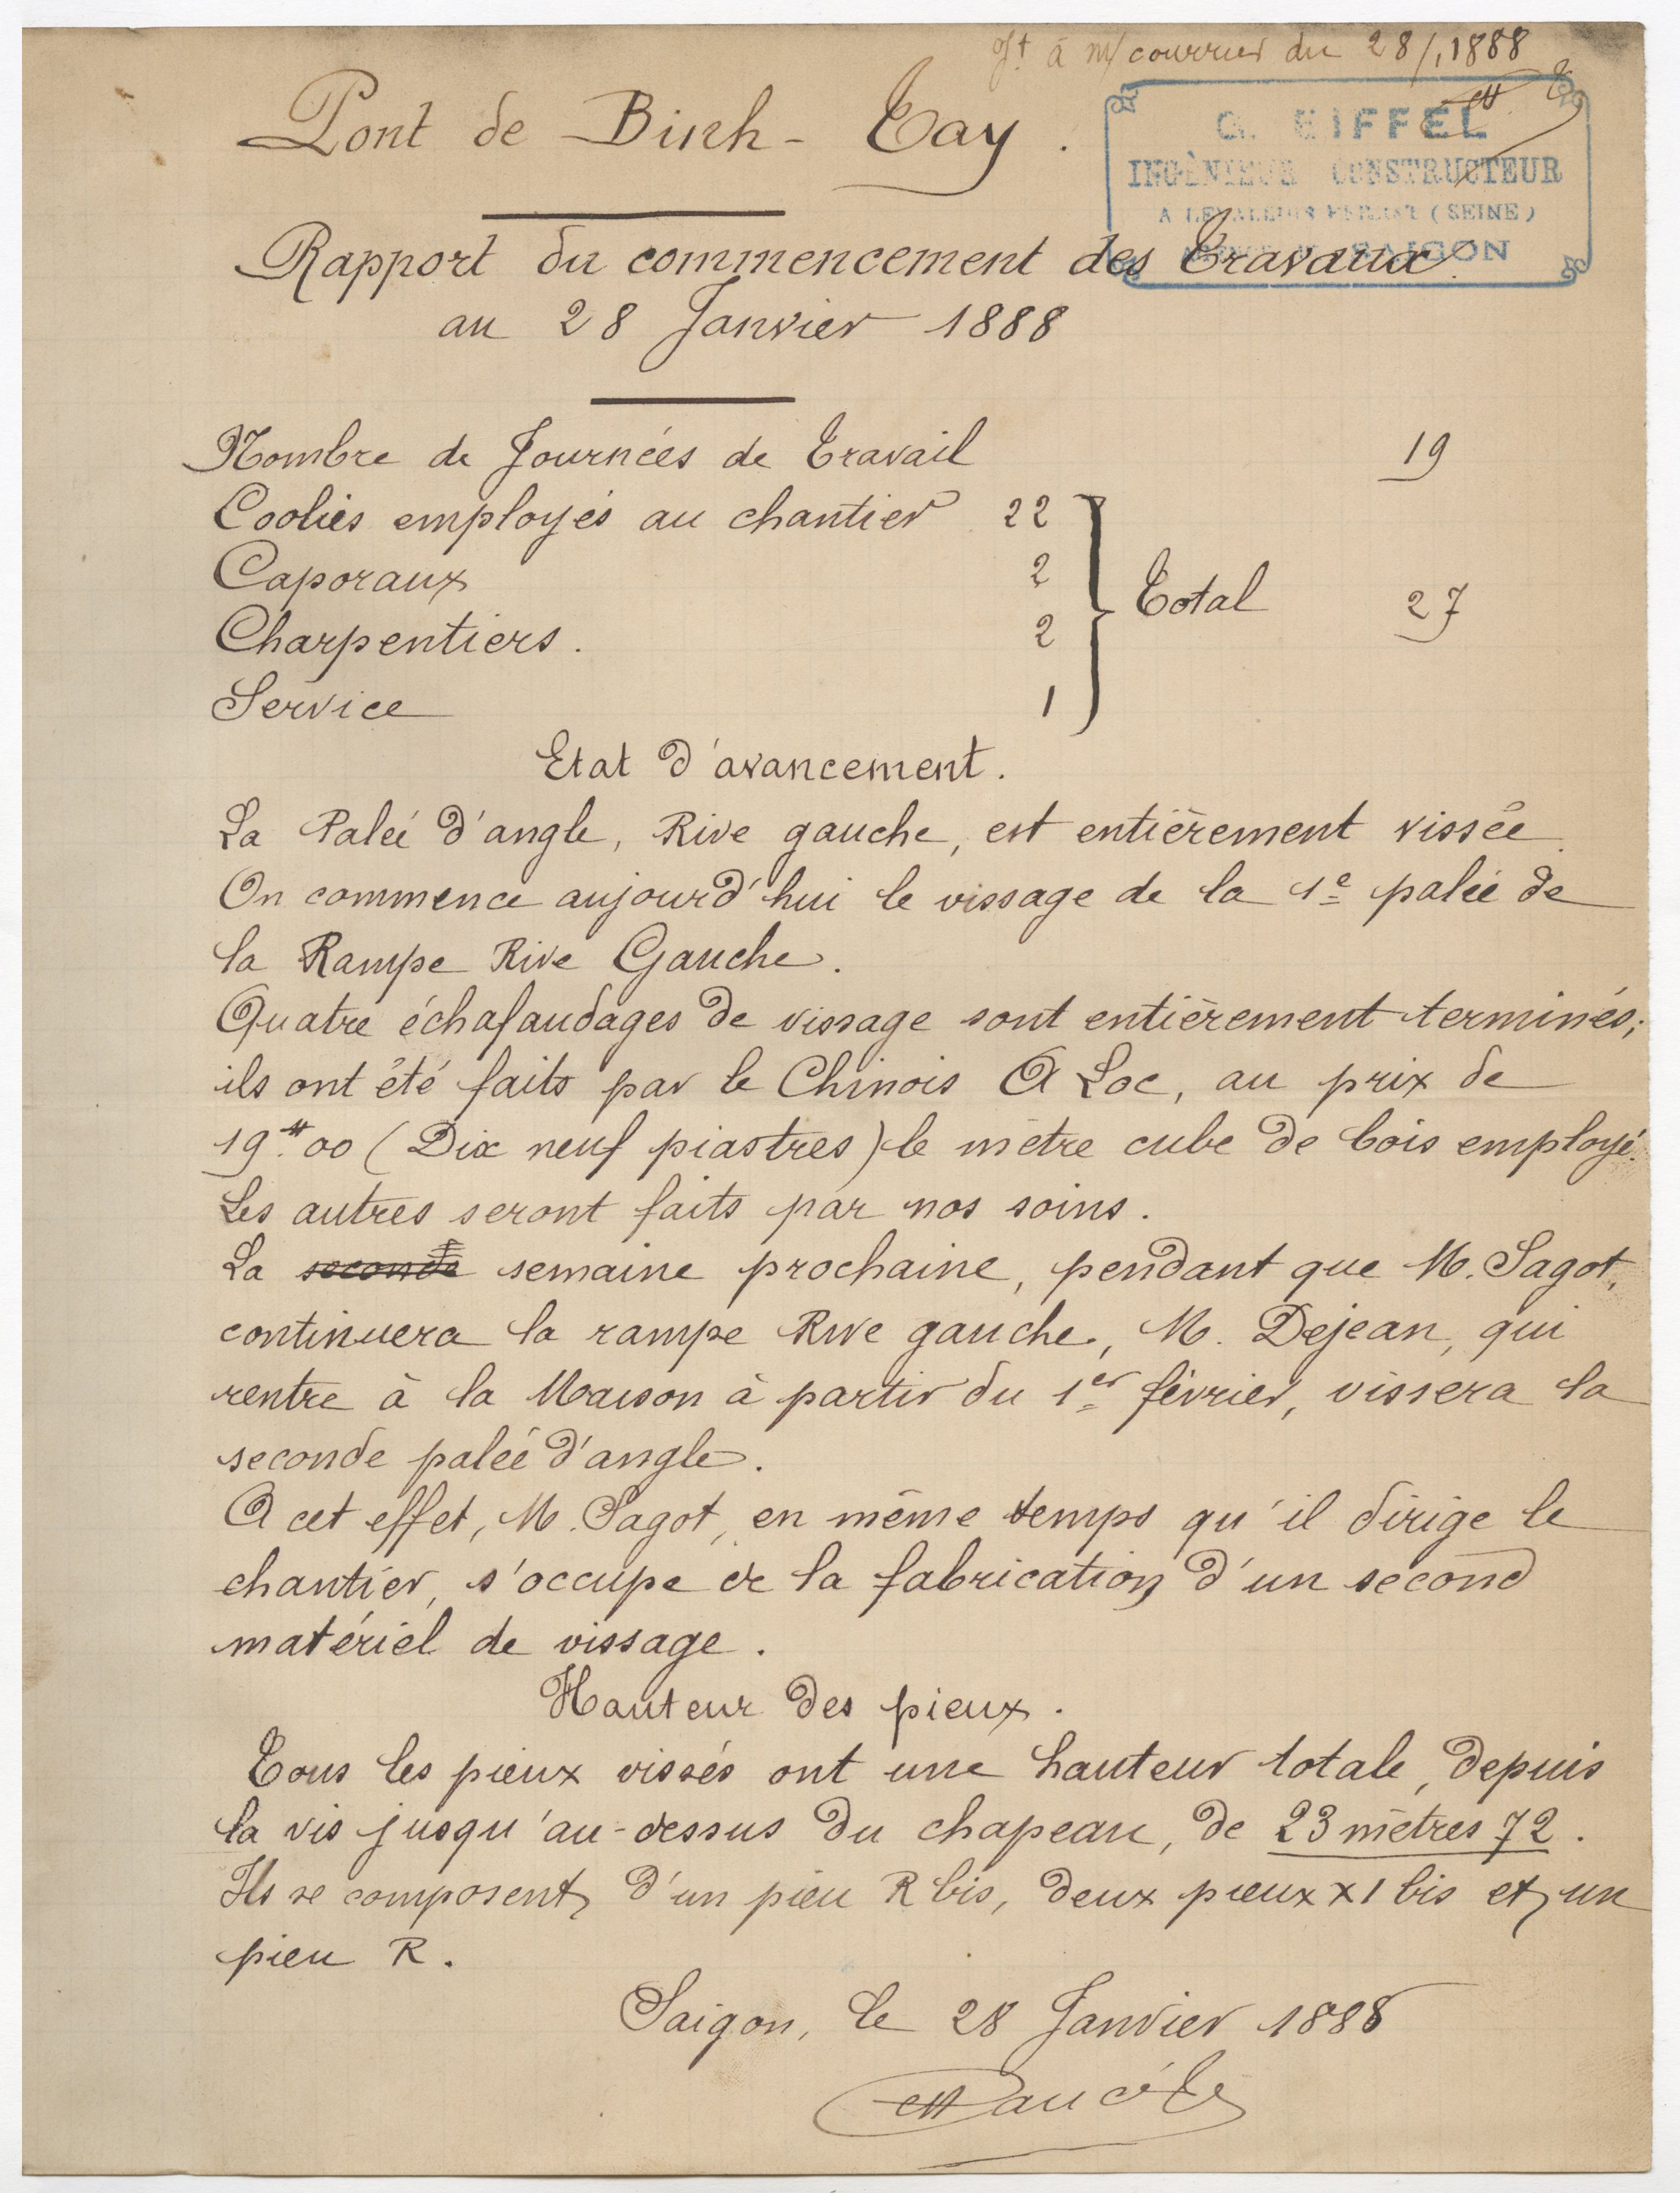 Jt à m/ courrier du 28/1 1888
Pont de Binh-Tay.
G. EIFFEL
INGÉNIEUR CONSTRUCTEUR
A LEVALLOIS-PERRET (SEINE)
SAIGON
Rapport du commencement des Travaux
au 28 Janvier 1888
Nombre de Journées de Travail 19
Coolies employés au chantier 22
Caporaux 2
Total 27
Charpentiers. 2
Service 1
Etat d'avancement.
La Palée d'angle, Rive gauche, est entièrement vissée.
On commence aujourd'hui le vissage de la 1e palée de
la Rampe Rive Gauche.
Quatre échafaudages de vissage sont entièrement terminés;
ils ont été faits par le Chinois A Loc, au prix de
19.00 (Dix neuf piastres) le mètre cube de bois employé.
Les autres seront faits par nos soins.
La seconde semaine prochaine, pendant que M. Sagot,
continuera la rampe Rive gauche, M. Dejean, qui
rentre à la Maison à partir du 1er février, vissera la
seconde palée d'angle.
A cet effet, M. Sagot, en même temps qu'il dirige le
chantier, s'occupe de la fabrication d'un second
matériel de vissage.
Hauteur des pieux.
Tous les pieux vissés ont une hauteur totale, depuis
la vis jusqu'au-dessus du chapeau, de 23 mètres 72.
Ils se composent d'un pieu R bis, deux pieux X 1 bis et un
pieu R.
Saigon, le 28 Janvier 1888